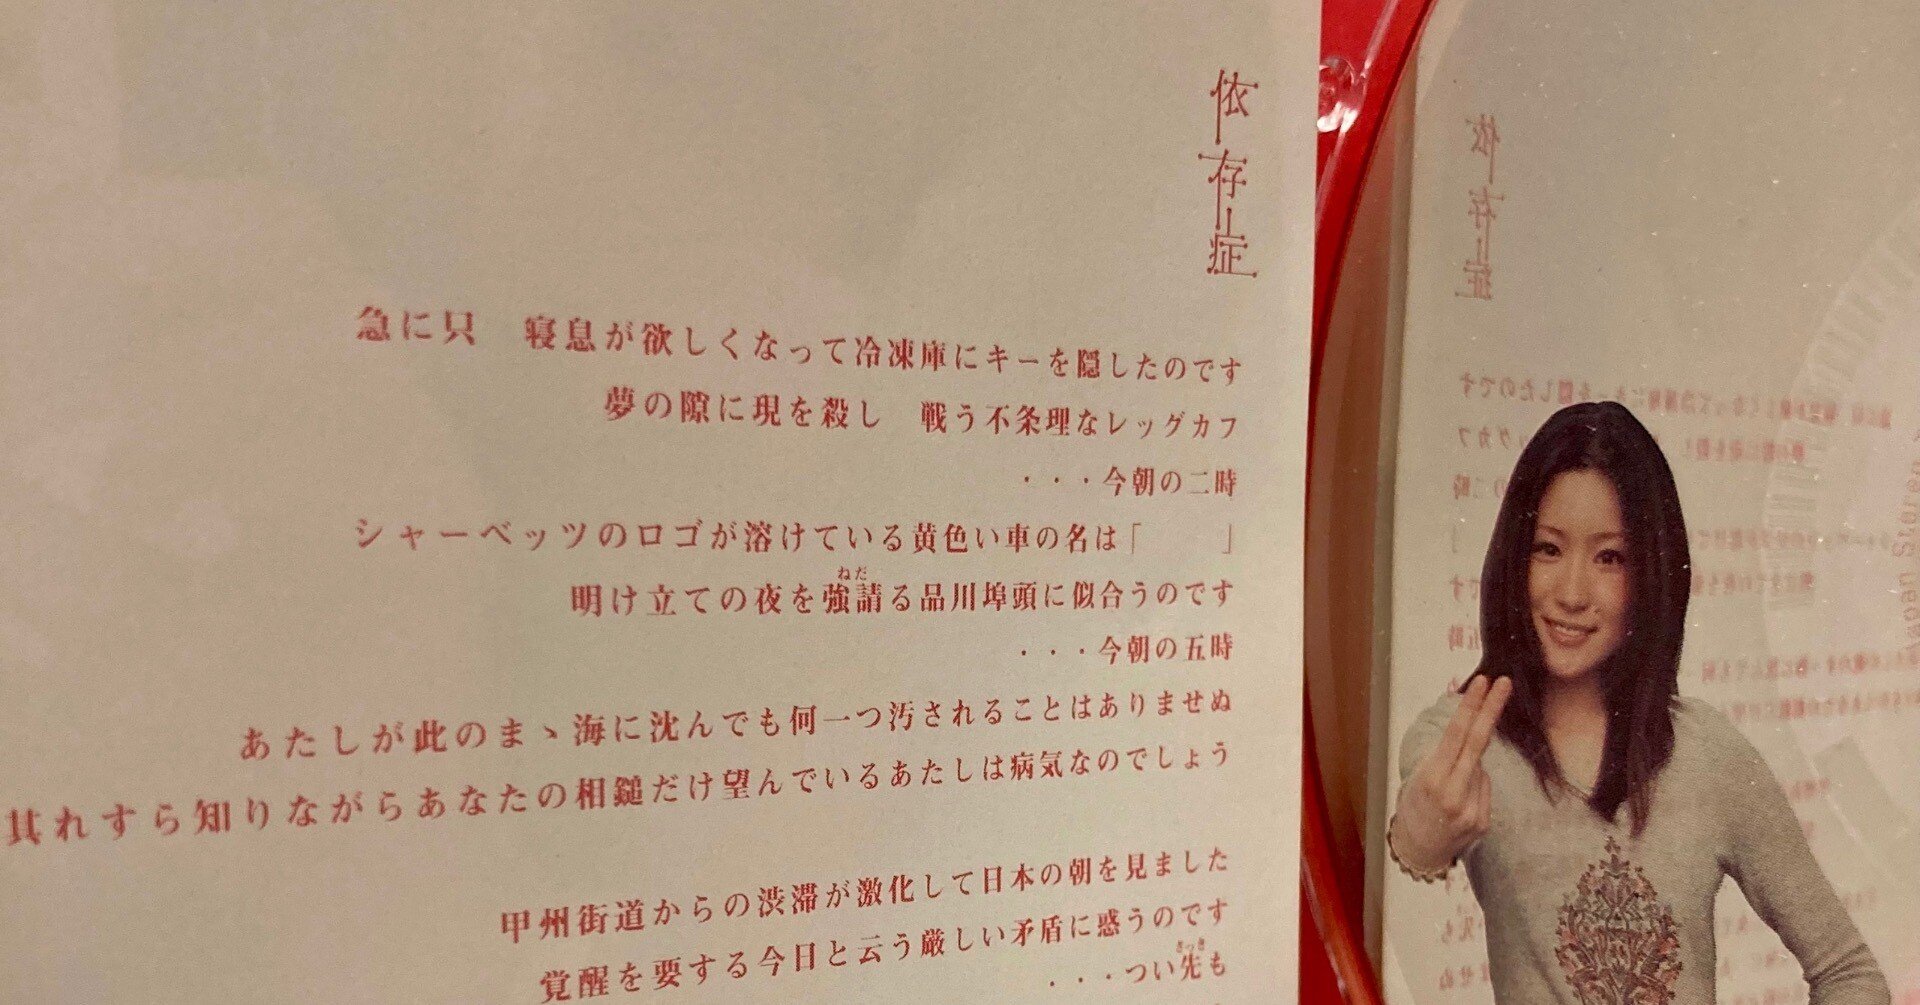 依存症
急に只　寝息が欲しくなって冷凍庫にキーを隠したのです
夢の隙に現を殺し　戦う不条理なレッグカフ
・・・今朝の二時
シャーベッツのロゴが溶けている黄色い車の名は「　　　」
明け立ての夜を強請る品川埠頭に似合うのです
ねだ
・・・今朝の五時
あたしが此のまゝ海に沈んでも何一つ汚されることはありませぬ
其れすら知りながらあなたの相鎚だけ望んでいるあたしは病気なのでしょう
甲州街道からの渋滞が激化して日本の朝を見ました
覚醒を要する今日と云う厳しい矛盾に惑うのです
・・・つい先も
さっき